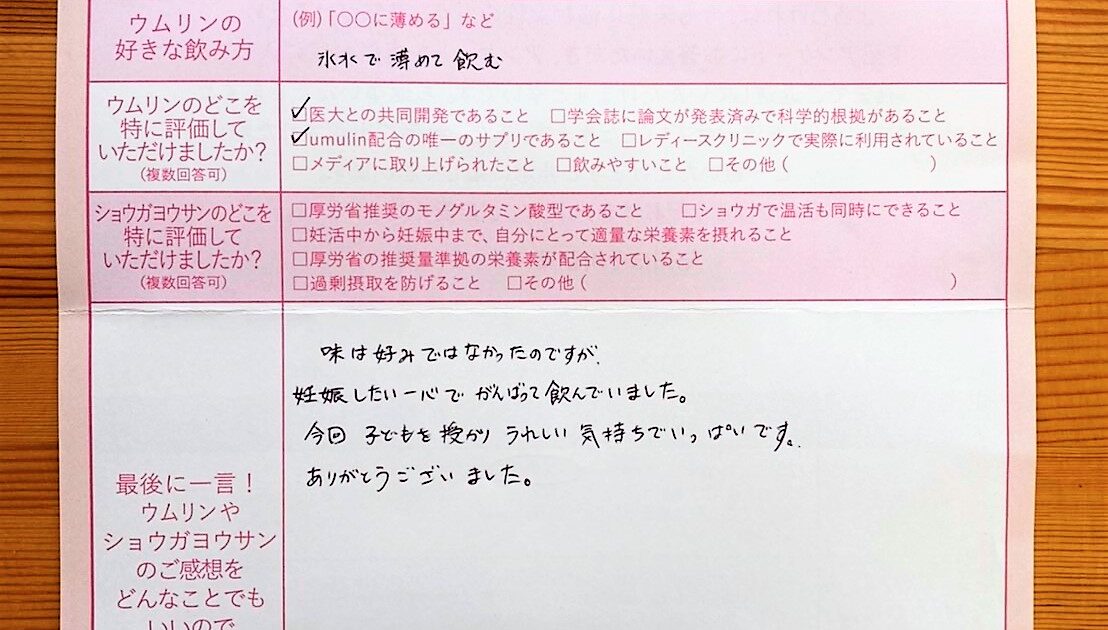 ウムリンの
好きな飲み方
(例)「〇〇に薄める」など
氷水で薄めて飲む
ウムリンのどこを
特に評価して
いただけましたか?
(複数回答可)
☑医大との共同開発であること □学会誌に論文が発表済みで科学的根拠があること
☑umulin配合の唯一のサプリであること □レディースクリニックで実際に利用されていること
□メディアに取り上げられたこと □飲みやすいこと □その他( )
ショウガヨウサンのどこを
特に評価して
いただけましたか?
(複数回答可)
□厚労省推奨のモノグルタミン酸型であること □ショウガで温活も同時にできること
□妊活中から妊娠中まで、自分にとって適量な栄養素を摂れること
□厚労省の推奨量準拠の栄養素が配合されていること
□過剰摂取を防げること □その他( )
最後に一言!
ウムリンや
ショウガヨウサン
のご感想を
どんなことでも
いいので
味は好みではなかったのですが、
妊娠したい一心でがんばって飲んでいました。
今回 子どもを授かり うれしい気持ちでいっぱいです。
ありがとうございました。